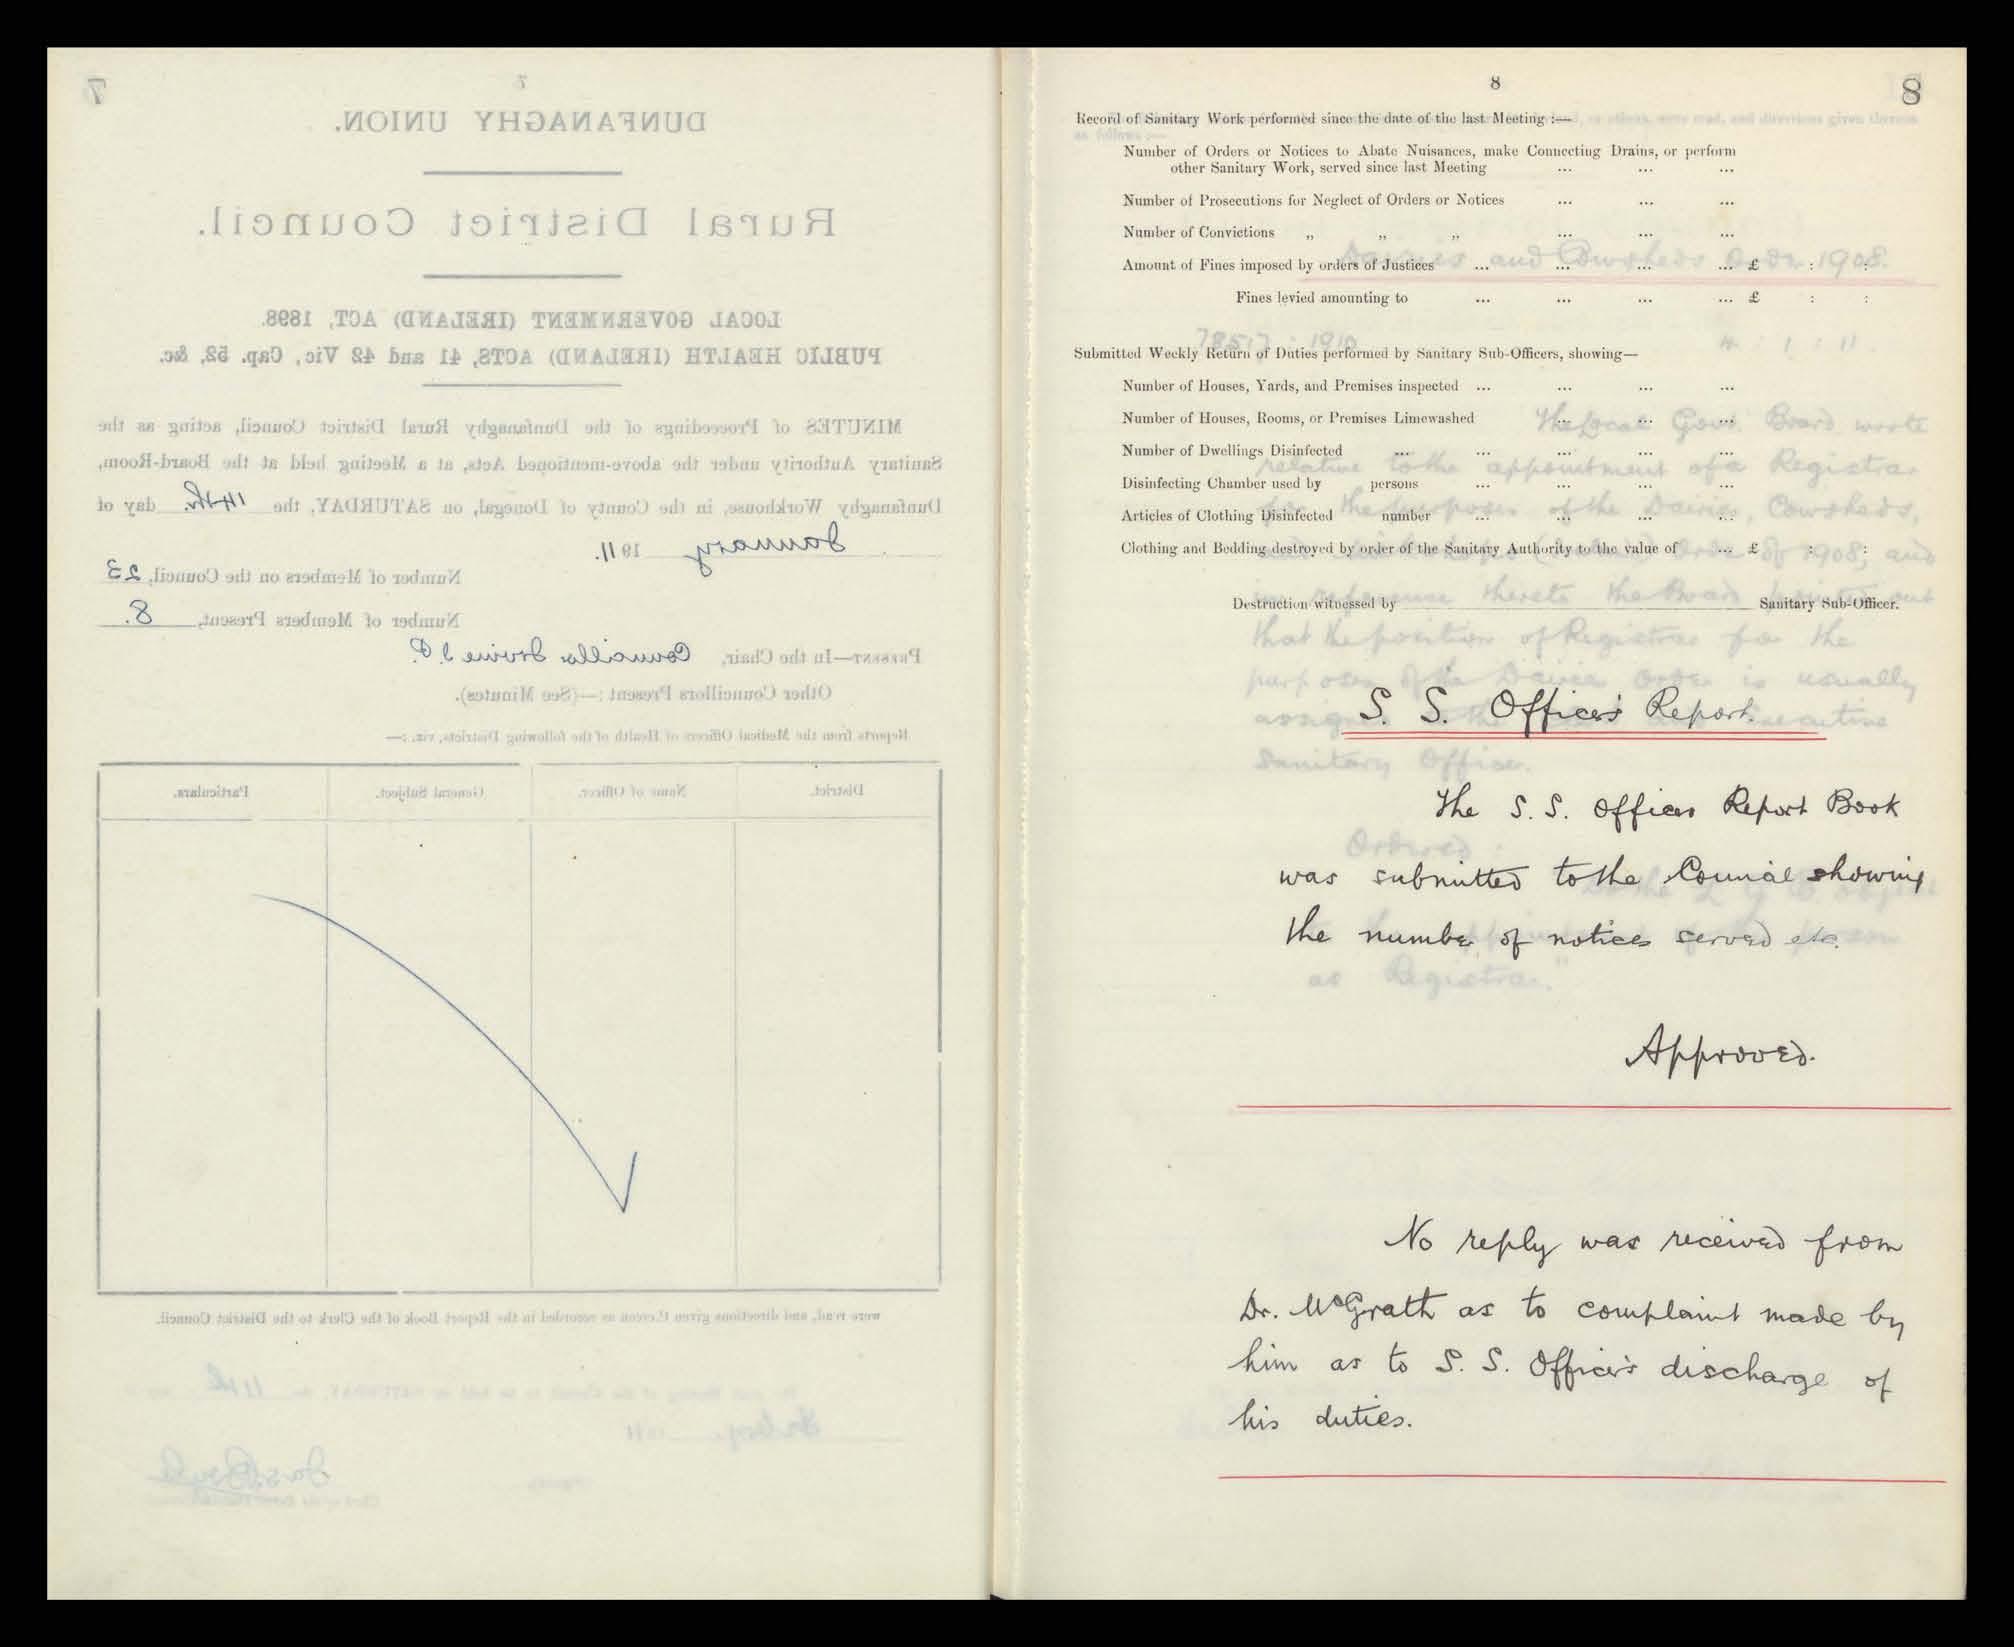 7
7
DUNFANAGHY UNION.
Rural District Council.
LOCAL GOVERNMENT (IRELAND) ACT, 1898.
PUBLIC HEALTH (IRELAND) ACTS, 41 and 42 Vic., Cap. 52, &c.
MINUTES of Proceedings of the Dunfanaghy Rural District Council, acting as the
Sanitary Authority under the above-mentioned Acts, at a Meeting held at the Board-Room,
Dunfanaghy Workhouse, in the County of Donegal, on SATURDAY, the 14th. day of
January 1911.
Number of Members on the Council, 23
Number of Members Present, 8.
PRESENT—In the Chair, Councillor Irvine J.P.
Other Councillors Present:—(See Minutes).
Reports from the Medical Officers of Health of the following Districts, viz.:—
District. Name of Officer. General Subject. Particulars.
were read, and directions given thereon as recorded in the Report Book of the Clerk to the District Council.
8
8
Record of Sanitary Work performed since the date of the last Meeting :—
Number of Orders or Notices to Abate Nuisances, make Connecting Drains, or perform
other Sanitary Work, served since last Meeting ... ... ...
Number of Prosecutions for Neglect of Orders or Notices ... ... ...
Number of Convictions „ „ „ ... ... ...
Amount of Fines imposed by orders of Justices ... ... ... ... £ : :
Fines levied amounting to ... ... ... ... £ : :
Submitted Weekly Return of Duties performed by Sanitary Sub-Officers, showing—
Number of Houses, Yards, and Premises inspected ... ... ... ...
Number of Houses, Rooms, or Premises Limewashed ... ... ...
Number of Dwellings Disinfected ... ... ... ... ...
Disinfecting Chamber used by persons ... ... ... ...
Articles of Clothing Disinfected number ... ... ... ...
Clothing and Bedding destroyed by order of the Sanitary Authority to the value of ... £ : :
Destruction witnessed by Sanitary Sub-Officer.
S. S. Officer's Report.
The S. S. Officers Report Book
was submitted to the Council showing
the number of notices served etc.
Approved.
No reply was received from
Dr. McGrath as to complaint made by
him as to S. S. Officer's discharge of
his duties.